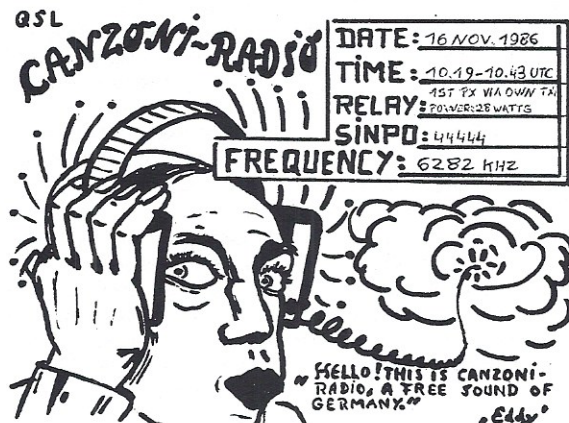 QSL
CANZONI-RADIO
DATE: 16 NOV. 1986
TIME: 10.19-10.43 UTC
RELAY: 1ST PX VIA OWN TX,
POWER:28 WATTS
SINPO: 44444
FREQUENCY: 6282 KHZ
„HELLO! THIS IS CANZONI-
RADIO, A FREE SOUND OF
GERMANY."
„Eddy"